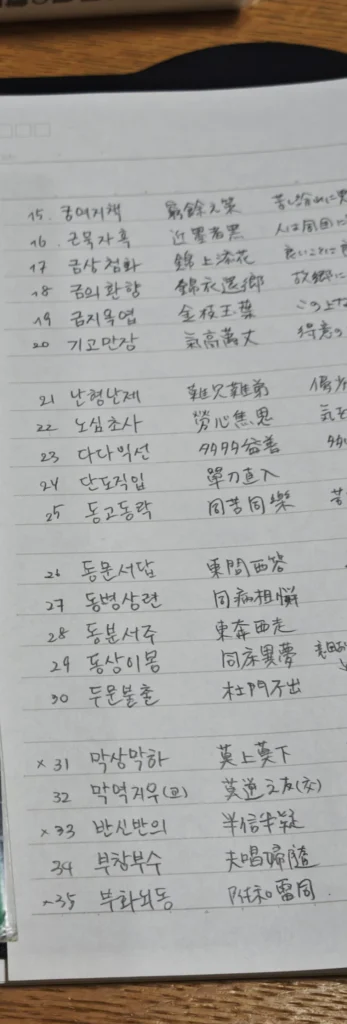 15. 궁여지책 窮餘之策 苦し紛れに
16. 근묵자흑 近墨者黑 人は周囲に
17 금상첨화 錦上添花 良いことに
18 금의환향 錦衣還鄕 故郷に
19 금지옥엽 金枝玉葉 この上な
20 기고만장 氣高萬丈 得意の
21 난형난제 難兄難弟
22 노심초사 勞心焦思 気を
23 다다익선 多多益善
24 단도직입 單刀直入
25 동고동락 同苦同樂 苦
26 동문서답 東問西答
27 동병상련 同病相憐
28 동분서주 東奔西走
29 동상이몽 同床異夢
30 두문불출 杜門不出
x 31 막상막하 莫上莫下
32 막역지우(교) 莫逆之友(交)
x 33 반신반의 半信半疑
34 부창부수 夫唱婦隨
~35 부화뇌동 附和雷同